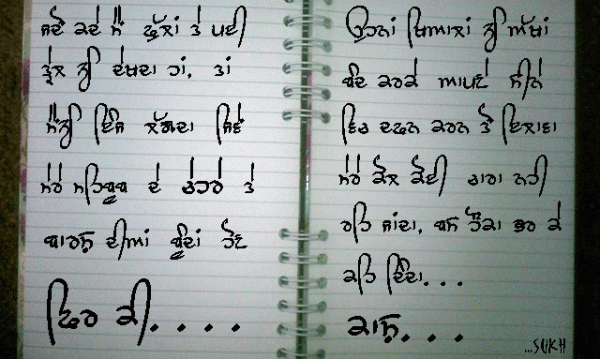 ਜਦੋਂ ਕਦੇ ਮੈਂ ਫੁੱਲਾਂ ਤੇ ਪਈ
ਤ੍ਰੇਲ ਨੂੰ ਦੇਖਦਾ ਹਾਂ, ਤਾਂ
ਮੈਨੂੰ ਇੰਜ ਲੱਗਦਾ ਜਿਵੇਂ
ਮੇਰੇ ਮਹਿਬੂਬ ਦੇ ਚੇਹਰੇ ਤੇ
ਬਾਰਸ਼ ਦੀਆਂ ਬੂੰਦਾਂ ਹੋਣ
ਫਿਰ ਕੀ....
ਉਹਨਾਂ ਖਿਆਲਾਂ ਨੂੰ ਅੱਖਾਂ
ਬੰਦ ਕਰਕੇ ਆਪਣੇ ਸੀਨੇ
ਵਿਚ ਦਫਨ ਕਰਨ ਤੋਂ ਇਲਾਵਾ
ਮੇਰੇ ਕੋਲ ਕੋਈ ਚਾਰਾ ਨਹੀ
ਰਹਿ ਜਾਂਦਾ, ਬਸ ਹੌਂਕਾ ਭਰ ਕੇ
ਕਹਿ ਦਿੰਦਾ...
ਕਾਸ਼....
...SUKH